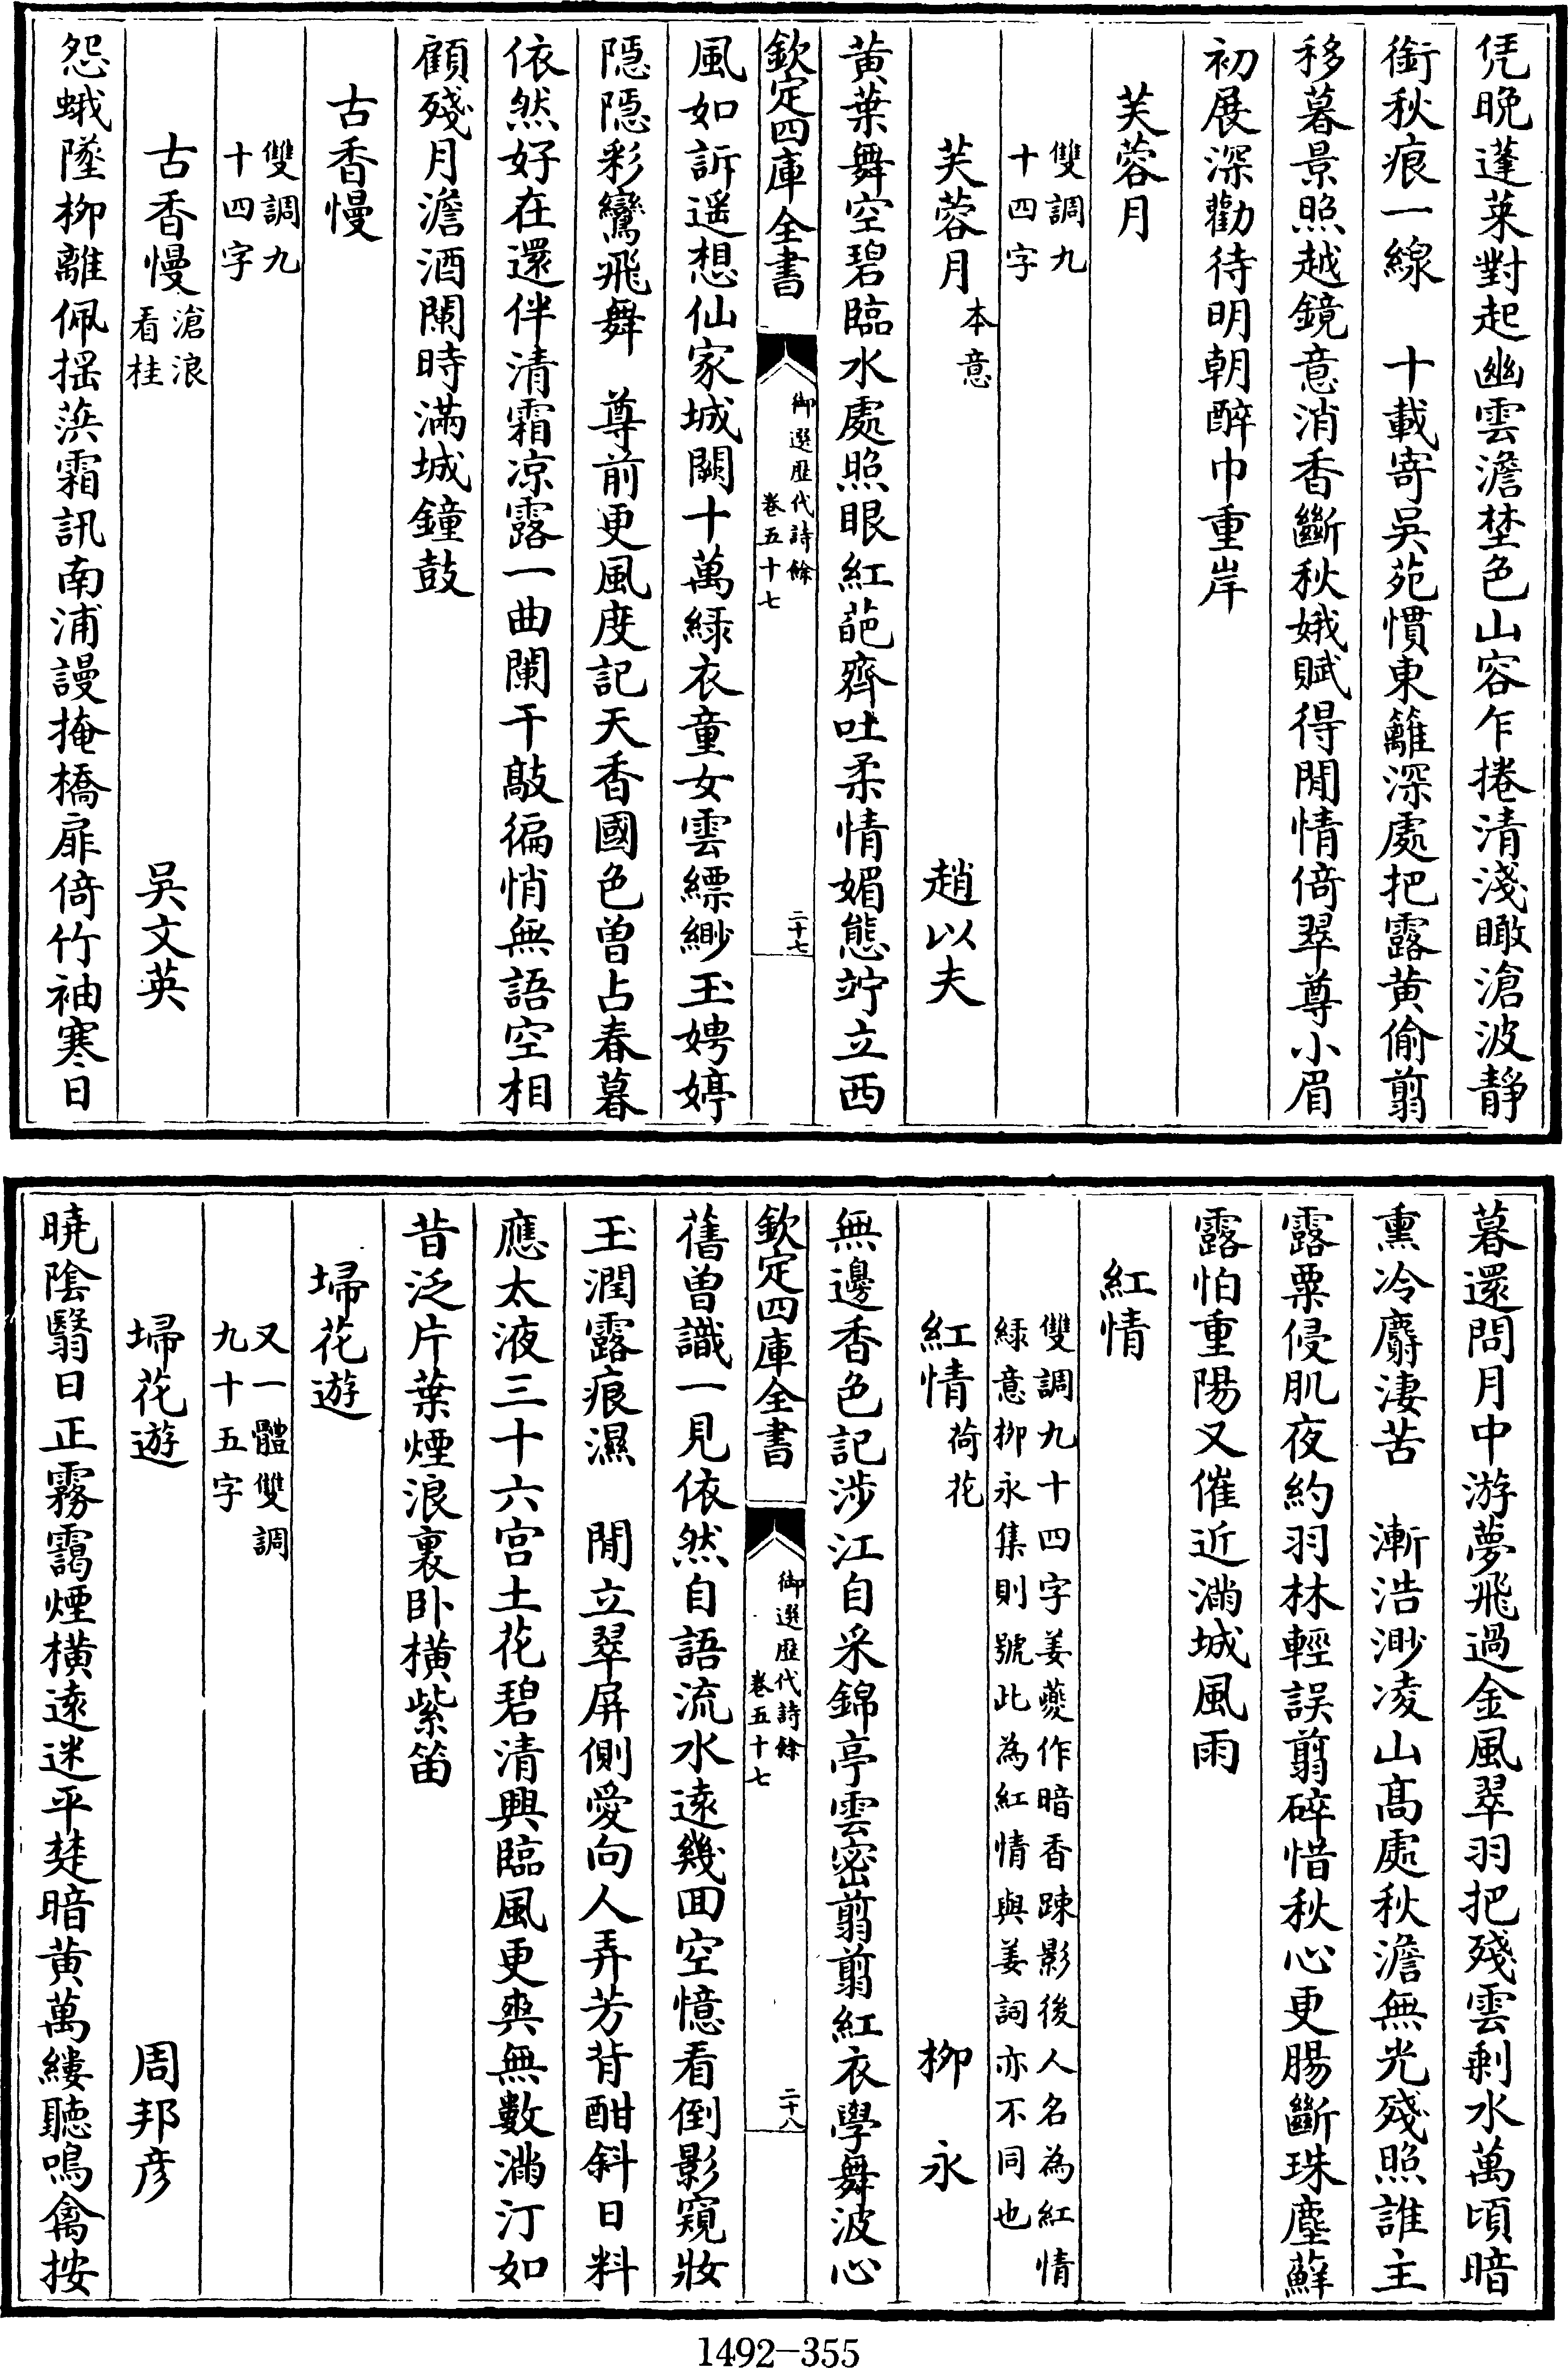 凭晚蓬萊對起幽雲澹埜色山容乍捲清淺瞰滄波靜
銜秋痕一線　十載寄吳苑慣東籬深處把露黃偷翦
移暮景照越鏡意消香斷秋娥賦得閒情倚翠尊小眉
初展深勸待明朝醉巾重岸
芙蓉月
雙調九
十四字
芙蓉月本意　趙以夫
黃葉舞空碧臨水處照眼紅葩齊吐柔情媚態竚立西
欽定四庫全書　御選歷代詩餘　卷五十七　二十七
風如訴遥想仙家城闕十萬緑衣童女雲縹緲玉娉婷
隱隱彩鸞飛舞　尊前更風度記天香國色曾占春暮
依然好在還伴清霜凉露一曲闌干敲徧悄無語空相
顧殘月澹酒闌時滿城鐘鼓
古香慢
雙調九
十四字
古香慢滄浪看桂　吳文英
怨蛾墜柳離佩揺葓霜訊南浦謾掩橋扉倚竹袖寒日
暮還問月中游夢飛過金風翠羽把殘雲剩水萬頃暗
熏冷麝淒苦　漸浩渺凌山高處秋澹無光殘照誰主
露粟侵肌夜約羽林輕誤翦碎惜秋心更腸斷珠塵蘚
露怕重陽又催近滿城風雨
紅情
雙調九十四字姜夔作暗香疎影後人名為紅情
緑意栁永集則號此為紅情與姜詞亦不同也
紅情荷花　栁永
無邊香色記涉江自采錦亭雲密翦翦紅衣學舞波心
欽定四庫全書　御選歷代詩餘　卷五十七　二十八
舊曾識一見依然自語流水遠幾囬空憶看倒影窺妝
玉潤露痕濕　閒立翠屏側愛向人弄芳背酣斜日料
應太液三十六宮土花碧清興臨風更爽無數滿汀如
昔泛片葉煙浪裏卧橫紫笛
埽花遊
又一體雙調
九十五字
埽花遊　周邦彦
曉陰翳日正霧靄煙橫遠迷平楚暗黃萬縷聽鳴禽按
1492-355